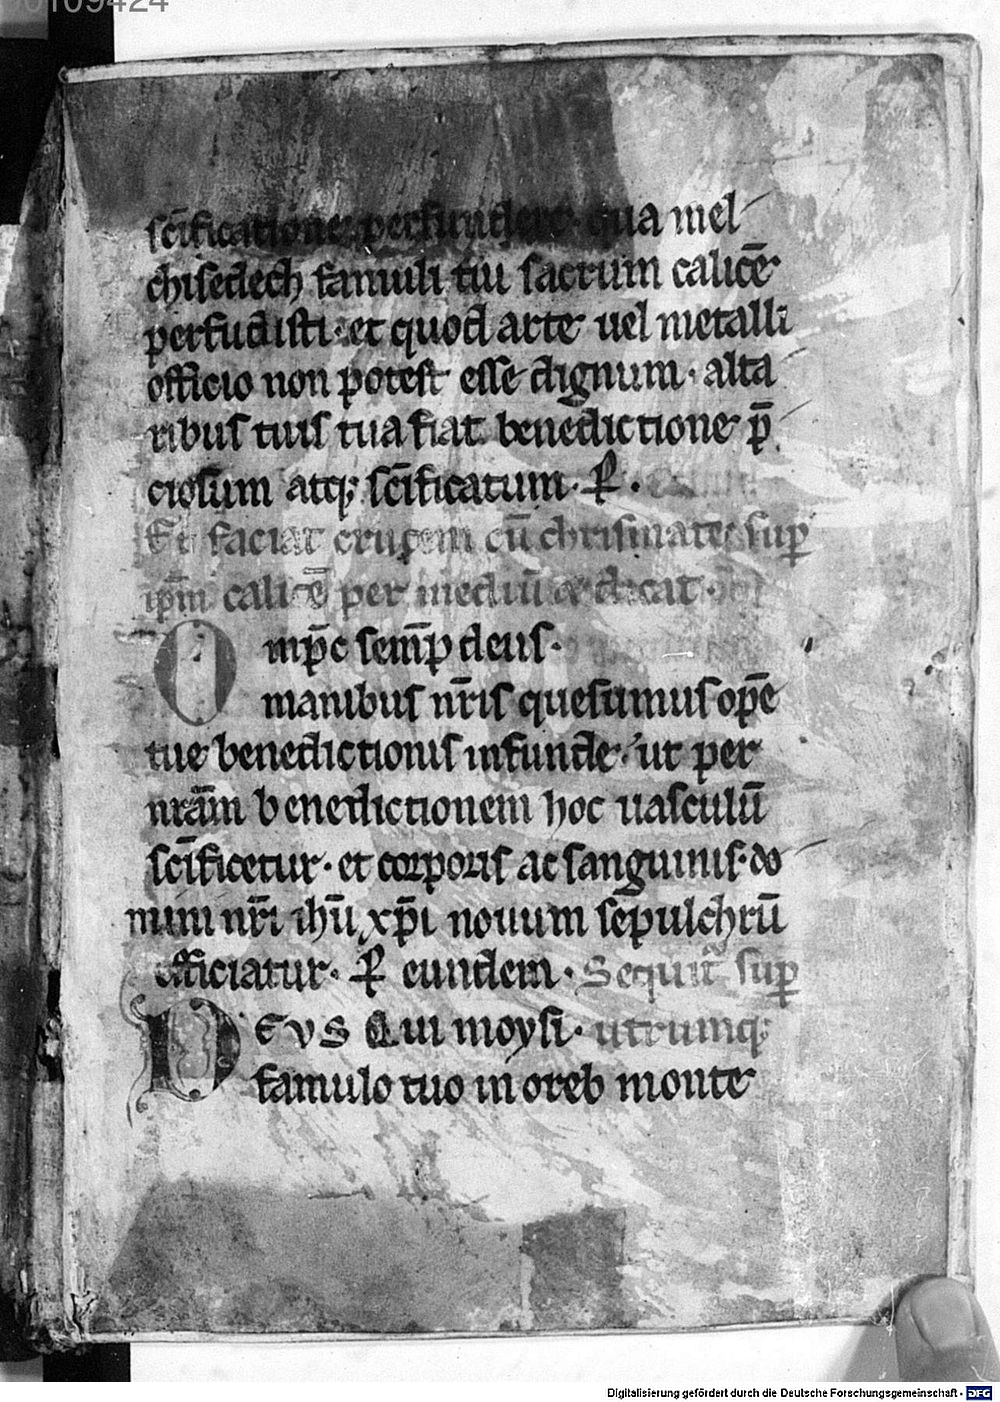 00109424
scīficatione perfundere. qua mel
chisedech famuli tui sacrum calicē
perfudisti. et quod arte uel metalli
officio non potest esse dignum. alta
ribus tuis tua fiat benedictione p̄
ciosum atq; scīficatum. P̱.
Et faciat crucem cū chrismate sup̱
ip̄m calicē per mediū & dicat
Omp̄c semp̱ deus.
manibus nr̄is quesumus opē
tue benedictionis infunde. ut per
nrām benedictionem hoc uasculū
scīficetur. et corporis ac sanguinis. do
mini nrī ihū xp̄i nouum sepulchrū
efficiatur. P̱ eundem. Sequit᷑ sup̱
DEVS Qui moysi. utrumq;
famulo tuo in oreb monte
Digitalisierung gefördert durch die Deutsche Forschungsgemeinschaft - DFG